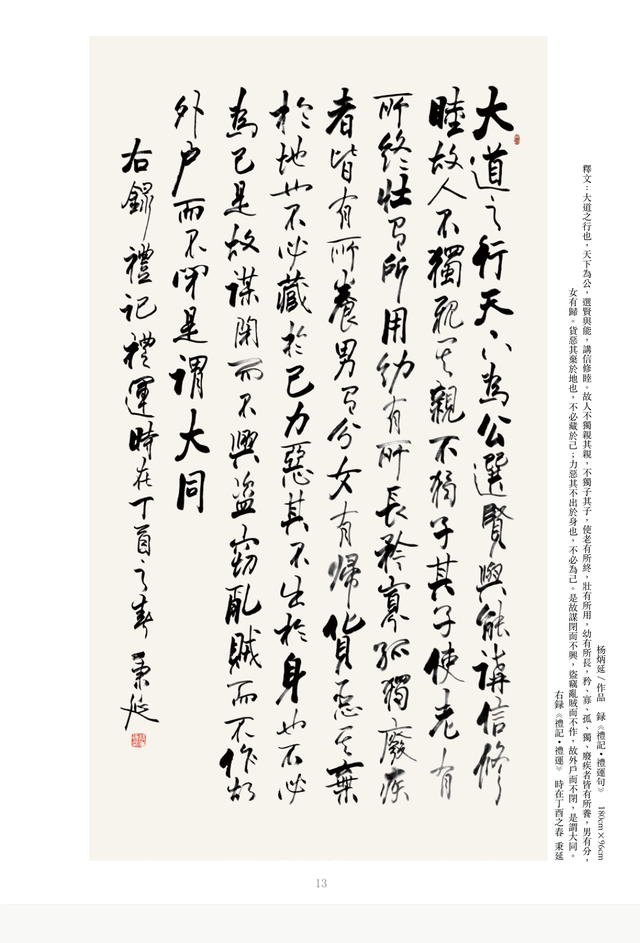 杨炳延/作品 録《禮記•禮運句》 180cm×96cm
釋文：大道之行也，天下為公，選賢與能，講信修睦。故人不獨親其親，不獨子其子，使老有所終，壯有所用，幼有所長，矜、寡、孤、獨、廢疾者皆有所養，男有分，
女有歸。貨惡其棄於地也，不必藏於己；力惡其不出於身也，不必為己。是故謀閉而不興，盜竊亂賊而不作，故外戶而不閉，是謂大同。
右録《禮記•禮運》 時在丁酉之春 秉延
大道之行天下為公選賢與能講信修
睦故人不獨親其親不獨子其子使老有
所終壯有所用幼有所長矜寡孤獨廢疾
者皆有所養男有分女有歸貨惡其棄
於地也不必藏於己力惡其不出於身也不必
為己是故謀閉而不興盜竊亂賊而不作故
外戶而不閉是謂大同
右錄禮記禮運時在丁酉之春秉延
13